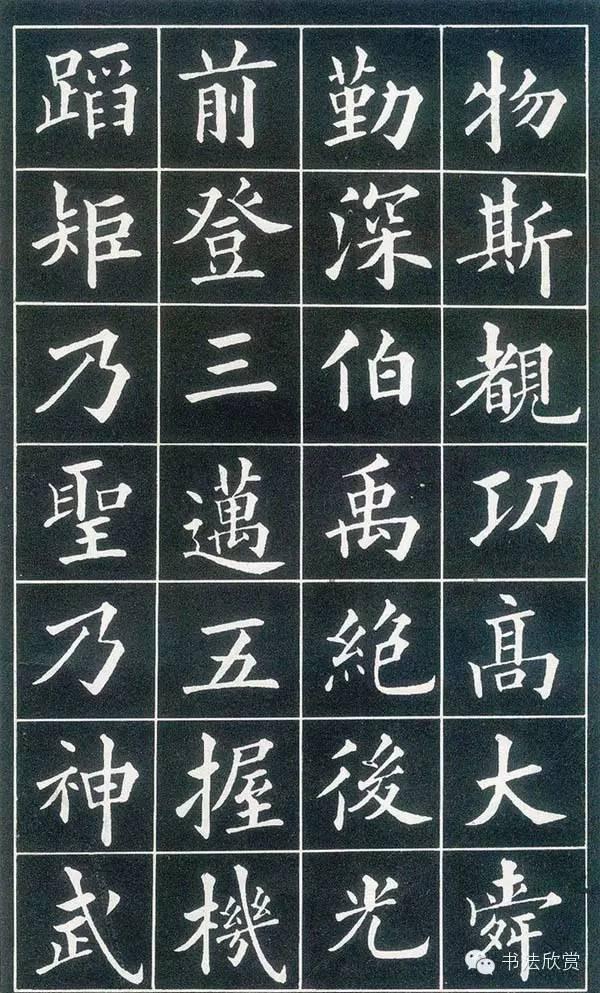 物斯覩功高大舜
勤深伯禹絶後光
前登三邁五握機
蹈矩乃聖乃神武
书法欣赏